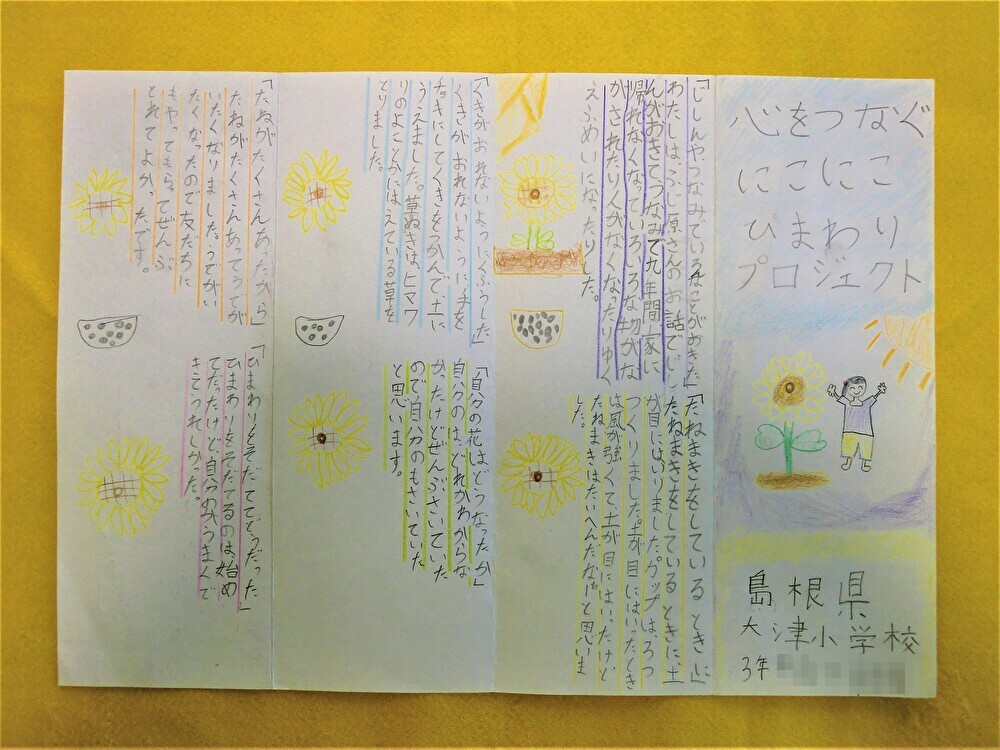 心をつなぐ
にこにこ
ひまわり
プロジェクト
島根県
大津小学校
3年
「じしんやつなみでいろんなことがおきた」
わたしは、ふじ原さんのお話でじし
んがおきてつなみで九年間家に
帰れなくなっていろいろな物がな
がされたり人がなくなったりゆく
えふめいになったりした。
「たねまきをしているときに」
たねまきをしているときに、土
が目にはいりました。カップは、ろっ
つくりました。土が目にはいったとき
は風が強くて土が目にはいったけど
たねまきはたいへんだなぁと思いま
した。
「くきがおれないようにくふうした」
くきがおれないように手を
チョキにしてくきをかんで土に
うえました。草ぬきは、ヒマワ
リのよこからはえている草を
とりました。
「自分の花はどうなったか」
自分のは、どれかわからな
かったけどぜんぶさいていた
ので自分のもさいていた
と思います。
「たねがたくさんあったから」
たねがたくさんあってうでが
いたくなりました。うでがい
たくなったので友だちに
もやってもらってぜんぶ
とれてよかったです。
「ひまわりをそだててどうだった」
ひまわりをそだてるのは、始め
てだったけど、自分のがうまくで
きてうれしかった。